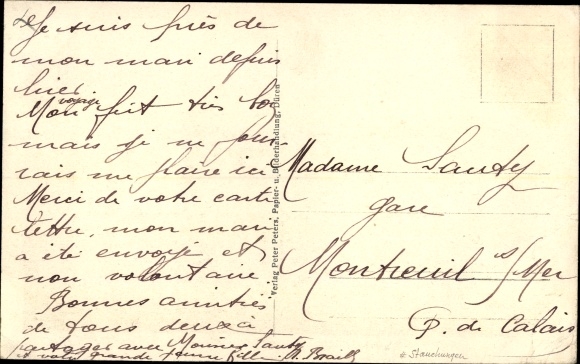 Je suis près de
mon mari depuis
hier
voyage
Mon fut très bon
mais je ne pour-
rais me plaire ici
Merci de votre carte
lettre, mon mari
a été envoyé et
non volontaire
Bonnes amitiés
de tous deux à
partager avec Monsieur Sauty
et votre grande jeune fille M.
Verlag Peter Peters, Papier- u. Bilderhandlung, Düren
Madame Sauty
gare
Montreuil s/Mer
P. de Calais
Stauchungen